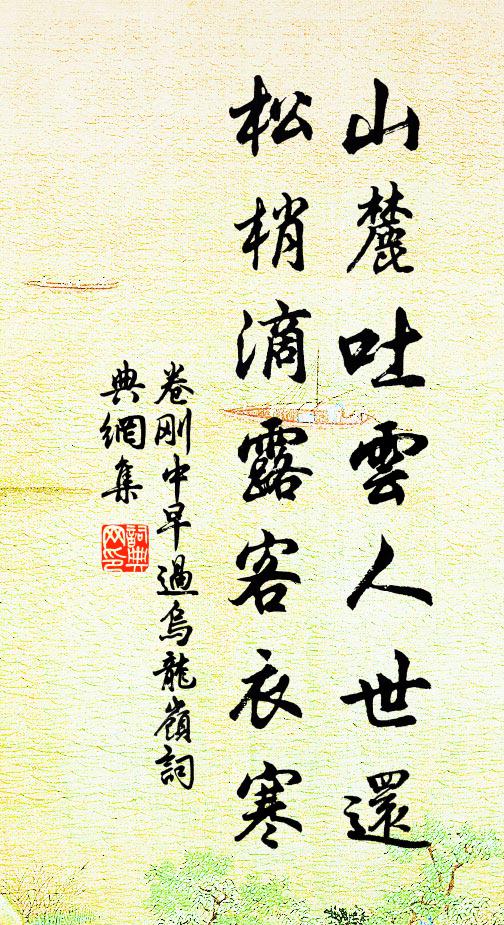 山麓吐雲人世還
松梢滴露客衣寒
卷剛中早過烏龍嶺詞
典網集
詞典
网印